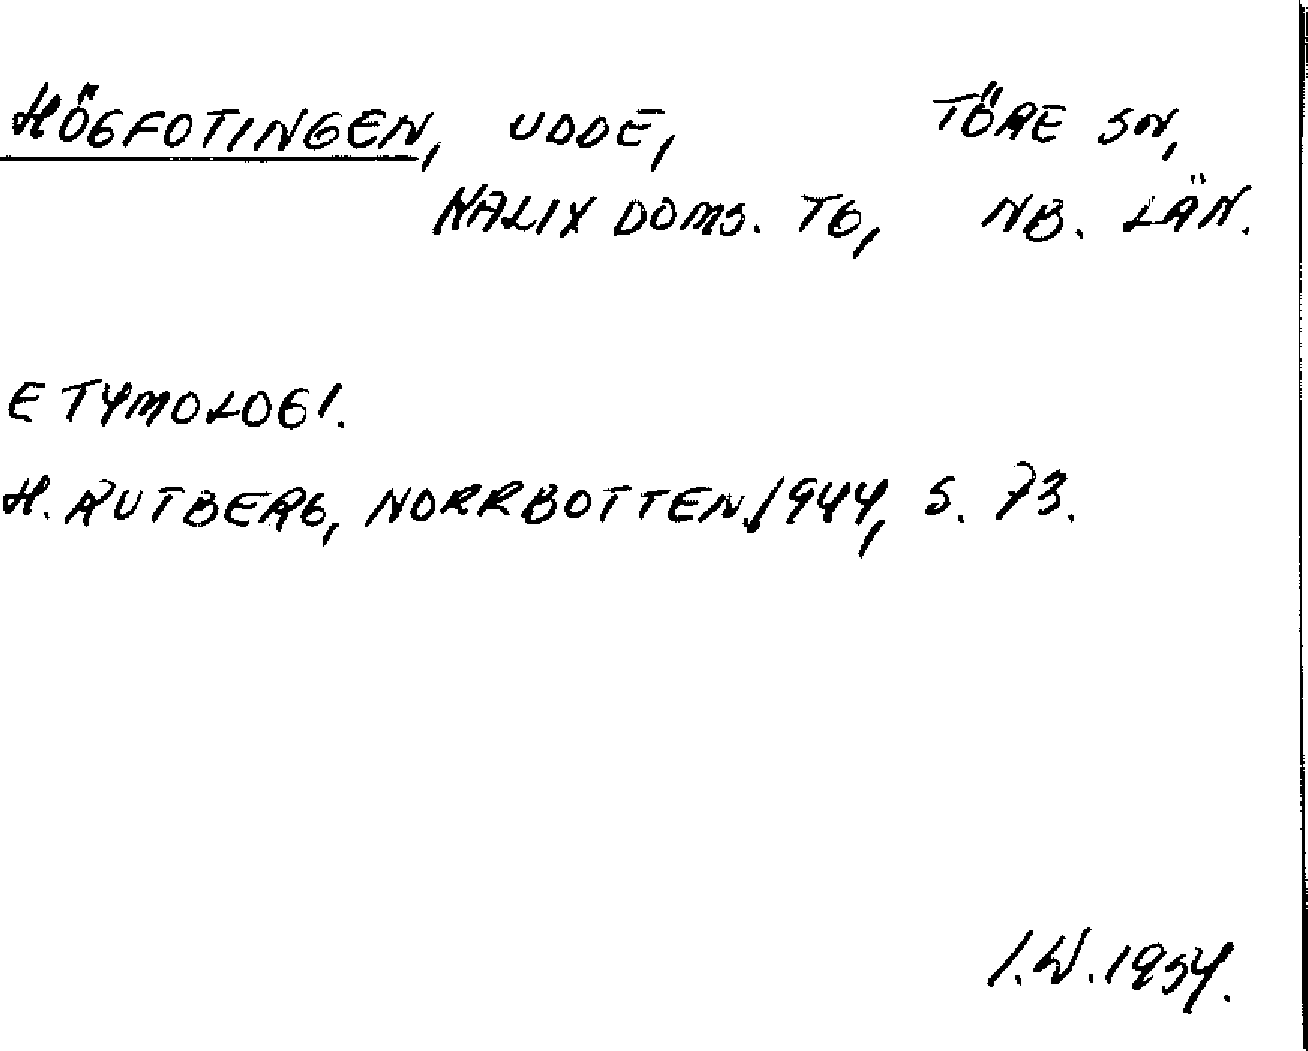 HÖGFOTINGEN, UDDE, TÖRE SN,
KALIX DOMS. TG, NB. LÄN.
ETYMOLOGI.
H. RUTBERG, NORRBOTTEN, 1944, S. 73.
I.W. 1954.